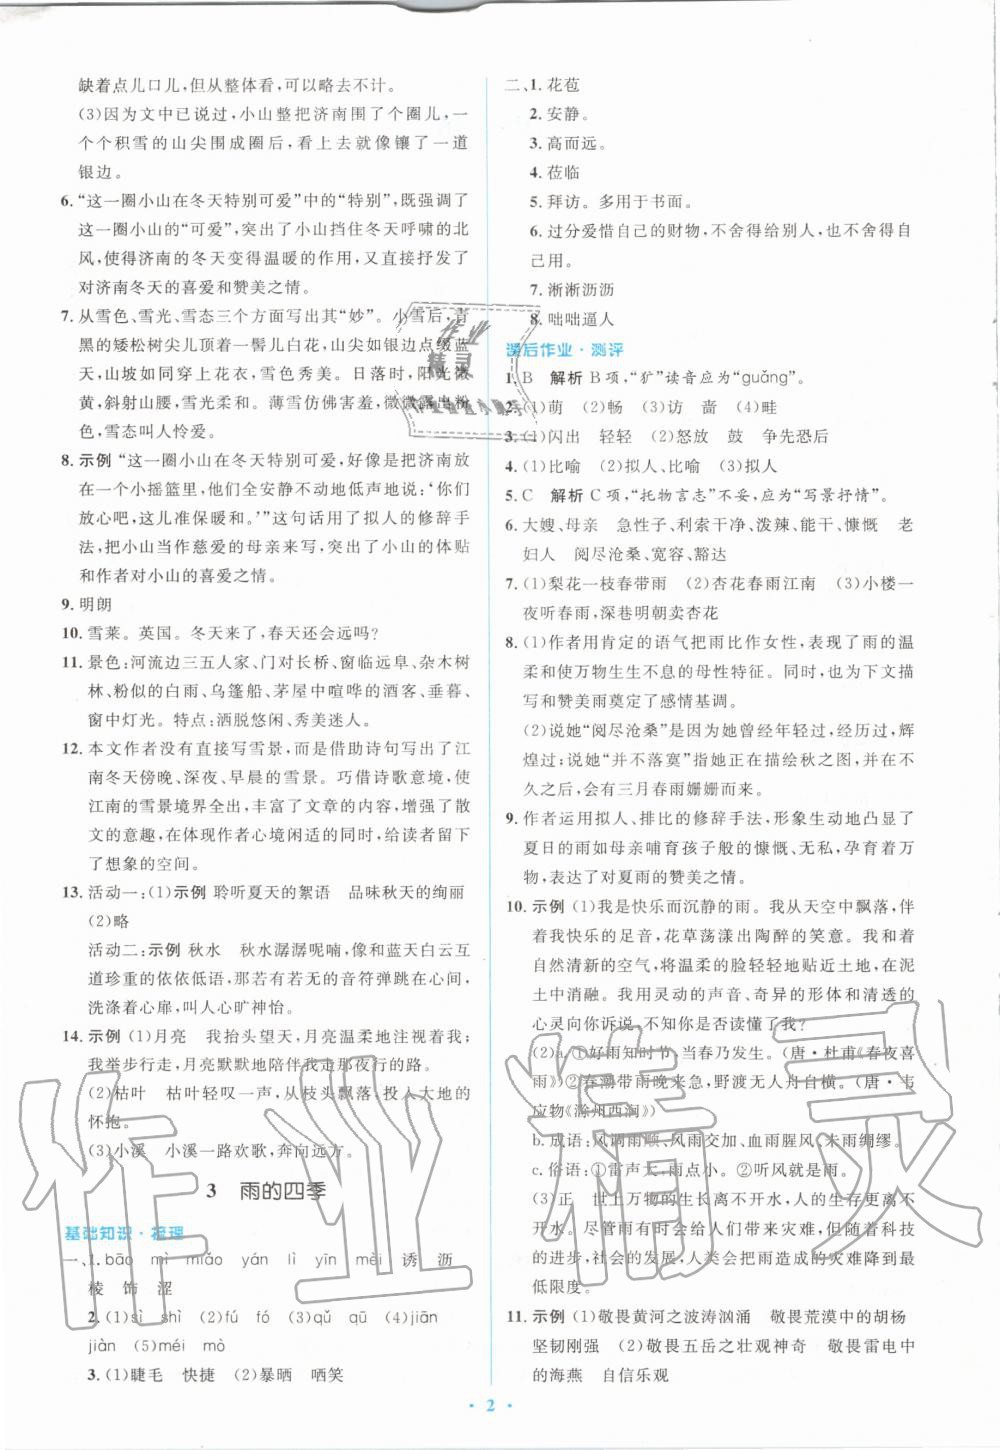 缺着点儿口儿,但从整体看,可以略去不计。
(3)因为文中已说过,小山整把济南围了个圈儿,一
个个积雪的山尖围成圈后,看上去就像镶了一道
银边。
6. “这一圈小山在冬天特别可爱”中的“特别”,既强调了
这一圈小山的“可爱”,突出了小山挡住冬天呼啸的北
风,使得济南的冬天变得温暖的作用,又直接抒发了
对济南冬天的喜爱和赞美之情。
7. 从雪色、雪光、雪态三个方面写出其“妙”。小雪后,青
黑的矮松树尖儿顶着一髻儿白花,树间露雪点缀蓝
天,山坡如同穿上花衣,雪色秀美。日落时,阳光微
黄,斜射山腰,雪光柔和。薄雪仿佛害羞,微微露出粉
色,雪态叫人怜爱。
8. 示例 “这一圈小山在冬天特别可爱,好像是把济南放
在一个小摇篮里,他们全安静不动地低声地说:‘你们
放心吧,这儿准保暖和。’”这句话用了拟人的修辞手
法,把小山当作慈爱的母亲来写,突出了小山的体贴
和作者对小山的喜爱之情。
9. 明朗
10. 雪莱。英国。冬天来了,春天还会远吗?
11. 景色:河流边三五人家、门对长桥、窗临远阜、杂木树
林、粉似的白雨、乌篷船、茅屋中喧哗的酒客、垂暮、
窗中灯光。特点:洒脱悠闲、秀美迷人。
12. 本文作者没有直接写雪景,而是借助诗句写出了江
南冬天傍晚、深夜、早晨的雪景。巧借诗歌意境,使
江南的雪景境界全出,丰富了文章的内容,增强了散
文的意趣,在体现作者心境闲适的同时,给读者留下
了想象的空间。
13. 活动一:(1)示例 聆听夏天的絮语 品味秋天的绚丽
(2)略
活动二:示例 秋水 秋水潺潺呢喃,像和蓝天白云互
道珍重的依依低语,那若有若无的音符弹跳在心间,
洗涤着心扉,叫人心旷神怡。
14. 示例 (1)月亮 我抬头望天,月亮温柔地注视着我;
我举步行走,月亮默默地陪伴我走那漫漫的夜行的路。
(2)枯叶 枯叶轻叹一声,从枝头飘落,投入大地的
怀抱。
(3)小溪 小溪一路欢歌,奔向远方。
3 雨的四季
基础知识·梳理
一、1. bāo mì miáo yán lì yīn mèi 诱 沥
棱 饰 涩
2. (1)sì shì (2)fú fó (3)qǔ qū (4)jiān
jiàn (5)méi mò
3. (1)睫毛 快捷 (2)暴晒 哂笑
二、1. 花苞
2. 安静。
3. 高而远。
4. 莅临
5. 拜访。多用于书面。
6. 过分爱惜自己的财物,不舍得给别人,也不舍得自
己用。
7. 淅淅沥沥
8. 咄咄逼人
课后作业·测评
1. B 解析 B项,“犷”读音应为“guǎng”。
2. (1)萌 (2)畅 (3)访 啬 (4)畦
3. (1)闪出 轻轻 (2)怒放 鼓 争先恐后
4. (1)比喻 (2)拟人、比喻 (3)拟人
5. C 解析 C项,“托物言志”不妥,应为“写景抒情”。
6. 大嫂、母亲 急性子、利索干净、泼辣、能干、慷慨 老
妇人 阅尽沧桑、宽容、豁达
7. (1)梨花一枝春带雨 (2)杏花春雨江南 (3)小楼一
夜听春雨,深巷明朝卖杏花
8. (1)作者用肯定的语气把雨比作女性,表现了雨的温
柔和使万物生生不息的母性特征。同时,也为下文描
写和赞美雨奠定了感情基调。
(2)说她“阅尽沧桑”是因为她曾经年轻过,经历过,辉
煌过;说她“并不落寞”指她正在描绘秋之图,并在不
久之后,会有三月春雨姗姗而来。
9. 作者运用拟人、排比的修辞手法,形象生动地凸显了
夏日的雨如母亲哺育孩子般的慷慨、无私,孕育着万
物,表达了对夏雨的赞美之情。
10. 示例 (1)我是快乐而沉静的雨。我从天空中飘落,伴
着我快乐的足音,花草荡漾出陶醉的笑意。我和着
自然清新的空气,将温柔的脸轻轻地贴近土地,在泥
土中消融。我用灵动的声音、奇异的形体和清透的
心灵向你诉说,不知你是否读懂了我?
(2)a. ①好雨知时节,当春乃发生。(唐·杜甫《春夜喜
雨》)②春潮带雨晚来急,野渡无人舟自横。(唐·韦
应物《滁州西涧》)
b. 成语:风调雨顺、风雨交加、血雨腥风、未雨绸缪。
c. 俗语:①雷声大,雨点小。②听风就是雨。
(3)正 世上万物的生长离不开水,人的生存更离不
开水。尽管雨有时会给人们带来灾难,但随着科技
的进步,社会的发展,人类会把雨造成的灾难降到最
低限度。
11. 示例 (1)敬畏黄河之波涛汹涌 敬畏荒漠中的胡杨
坚韧刚强 (2)敬畏五岳之壮观神奇 敬畏雷电中
的海燕 自信乐观
2
作业精灵
作业
精灵